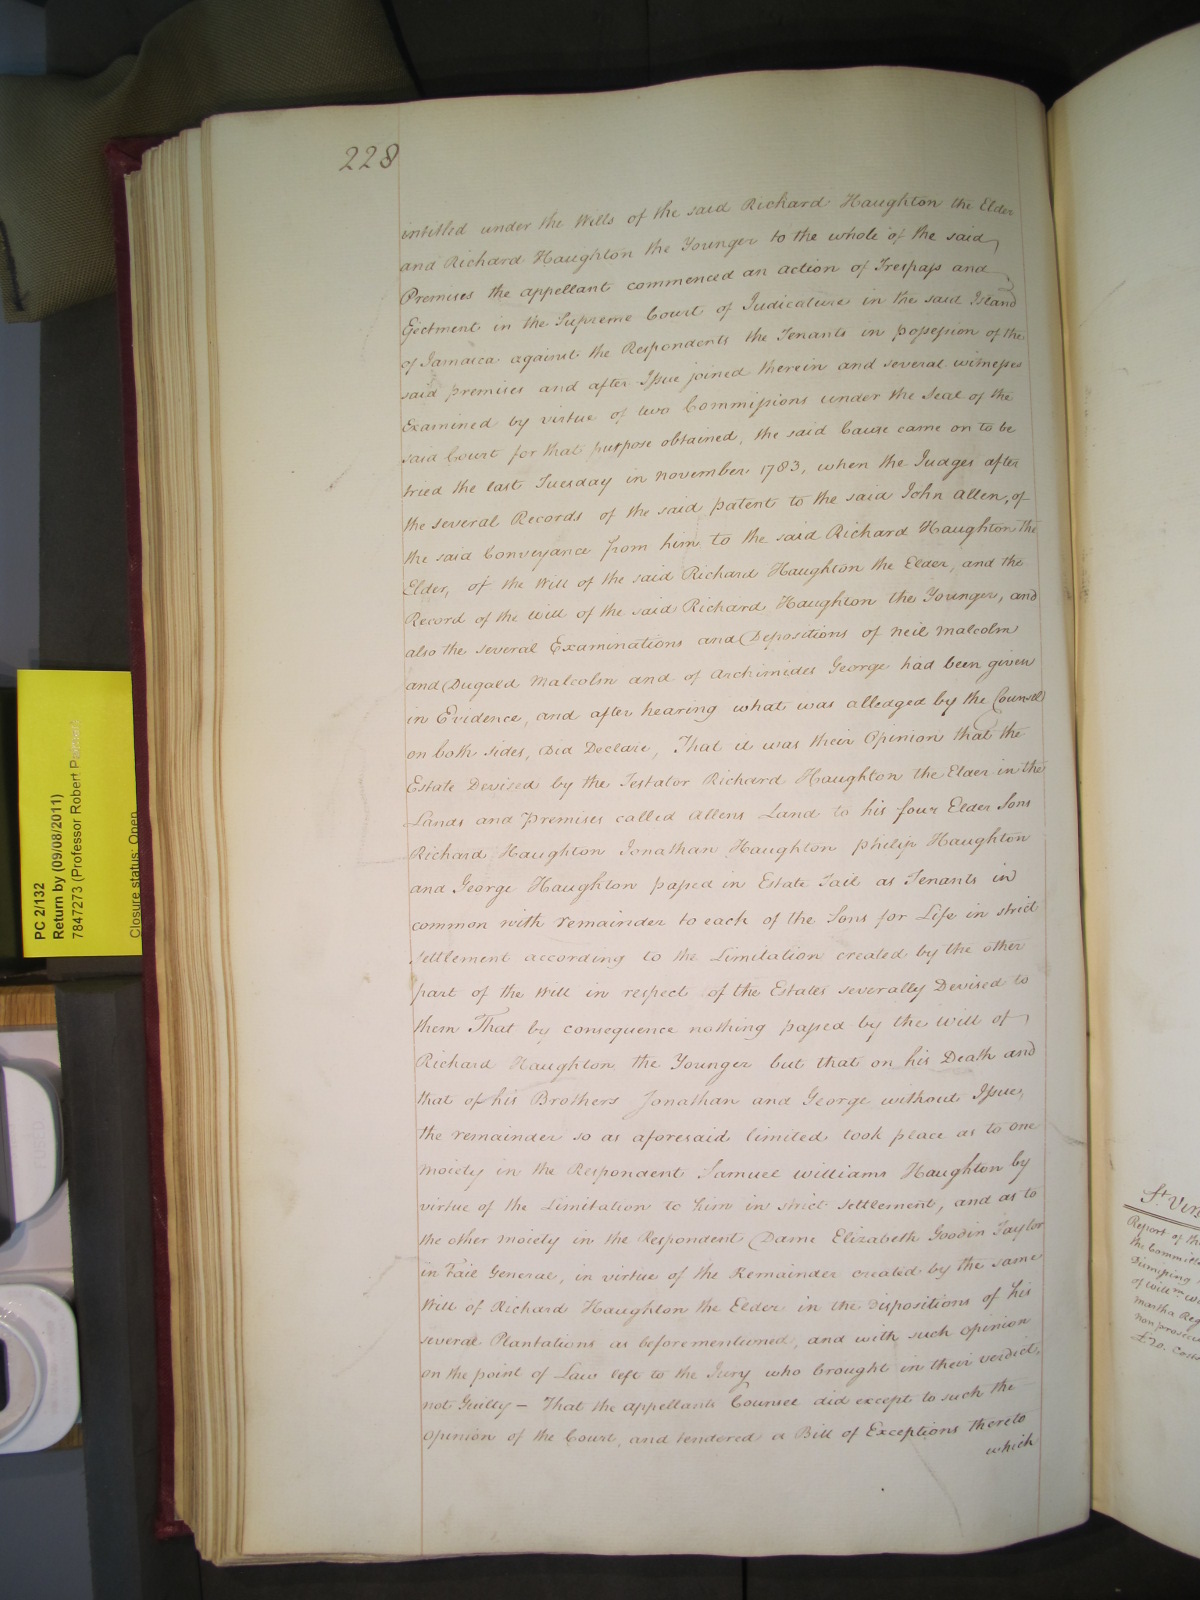 228
intitled under the Wills of the said Richard Haughton the Elder
and Richard Haughton the Younger to the whole of the said
Premises the appellant commenced an action of Trespass and
Ejectment in the Supreme Court of Judicature in the said Island
of Jamaica against the Respondents the Tenants in possession of the
said premises and after Issue joined therein and several witnesses
Examined by virtue of two Commissions under the Seal of the
said Court for that purpose obtained, the said Cause came on to be
tried the last Tuesday in november 1783, when the Judges after
the several Records of the said patent to the said John Allen, of
the said Conveyance from him to the said Richard Haughton the
Elder, of the Will of the said Richard Haughton the Elder, and the
Record of the will of the said Richard Haughton the Younger, and
also the several Examinations and Depositions of neil malcolm
and Dugald malcolm and of Archimedes George had been given
in Evidence, and after hearing what was alledged by the Counsel
on both sides, did Declare, That it was their Opinion that the
Estate Devised by the Testator Richard Haughton the Elder in the
Lands and premises called Allens Land to his four Elder Sons
Richard Haughton Jonathan Haughton philip Haughton
and George Haughton passed in Estate Tail as Tenants in
common with remainder to each of the Sons for Life in strict
settlement according to the Limitation created by the other
part of the Will in respect of the Estates severally Devised to
them That by consequence nothing passed by the will of
Richard Haughton the Younger but that on his Death and
that of his Brothers Jonathan and George without Issue,
the remainder so as aforesaid limited took place as to one
moiety in the Respondent Samuel Williams Haughton by
virtue of the Limitation to him in strict settlement, and as to
the other moiety in the Respondent Dame Elizabeth Goodin Taylor
in Tail General, in virtue of the Remainder created by the same
Will of Richard Haughton the Elder in the dispositions of his
several Plantations as beforementioned, and with such opinion
on the point of Law left to the Jury who brought in their verdict,
not Guilty — That the appellants Counsel did except to such the
opinion of the Court, and tendered a Bill of Exceptions thereto
which
PC 2/132
Return by (09/08/2011)
7847273 (Professor Robert Palmer)
Closure status: Open
Report of the
the Committee
Dismissing
of Willm
Martha
non prosecution